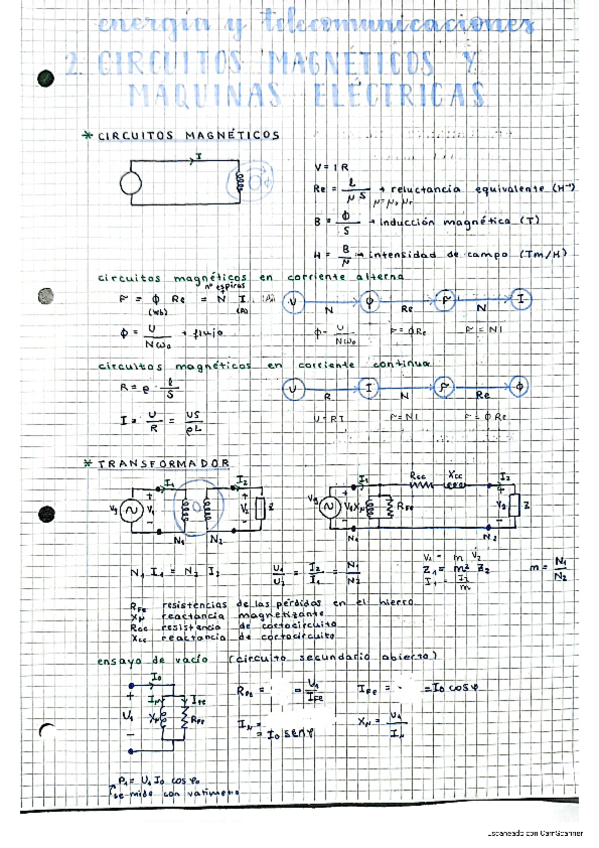 energía y telecomunicaciones
2. CIRCUITOS MAGNÉTICOS Y
MAQUINAS ELÉCTRICAS
* CIRCUITOS MAGNÉTICOS
I
V = I R
Re = l / μ S → reluctancia equivalente (H⁻¹)
μ = μ₀ μr
B = ϕ / S → inducción magnética (T)
H = B / μ → intensidad de campo (Tm/H)
circuitos magnéticos en corriente alterna
nº espiras
F = ϕ Re = N I
(Wb) (A)
V N ϕ Re F N I
ϕ = U / Nω₀ → flujo
ϕ = U / Nω₀ F = ϕRe F = NI
circuitos magnéticos en corriente continua
R = ρ · l / S
V R I N F Re ϕ
I = U / R = US / ρL
U = RI F = NI F = ϕRe
* TRANSFORMADOR
I₁ I₂
Vg V₁ V₂ Z
N₁ N₂
I₁ Rcc Xcc I₂
Vg V₁ Xμ RFe V₂ Z
N₁ N₂
N₁ I₁ = N₂ I₂
U₁ / U₂ = I₂ / I₁ = N₁ / N₂
V₁ = m V₂
Z₁ = m² Z₂
I₁ = I₂ / m
m = N₁ / N₂
RFe resistencias de las pérdidas en el hierro
Xμ reactancia magnetizante
Rcc resistencia de cortocircuito
Xcc reactancia de cortocircuito
ensayo de vacío (circuito secundario abierto)
I₀
+ Iμ IFe
U₁ Xμ RFe
−
RFe = = U₁ / IFe
IFe = = I₀ cos φ
Iμ =
= I₀ sen φ
Xμ = U₁ / Iμ
P₁ = U₁ I₀ cos φ₀
se mide con vatímetro
Escaneado con CamScanner